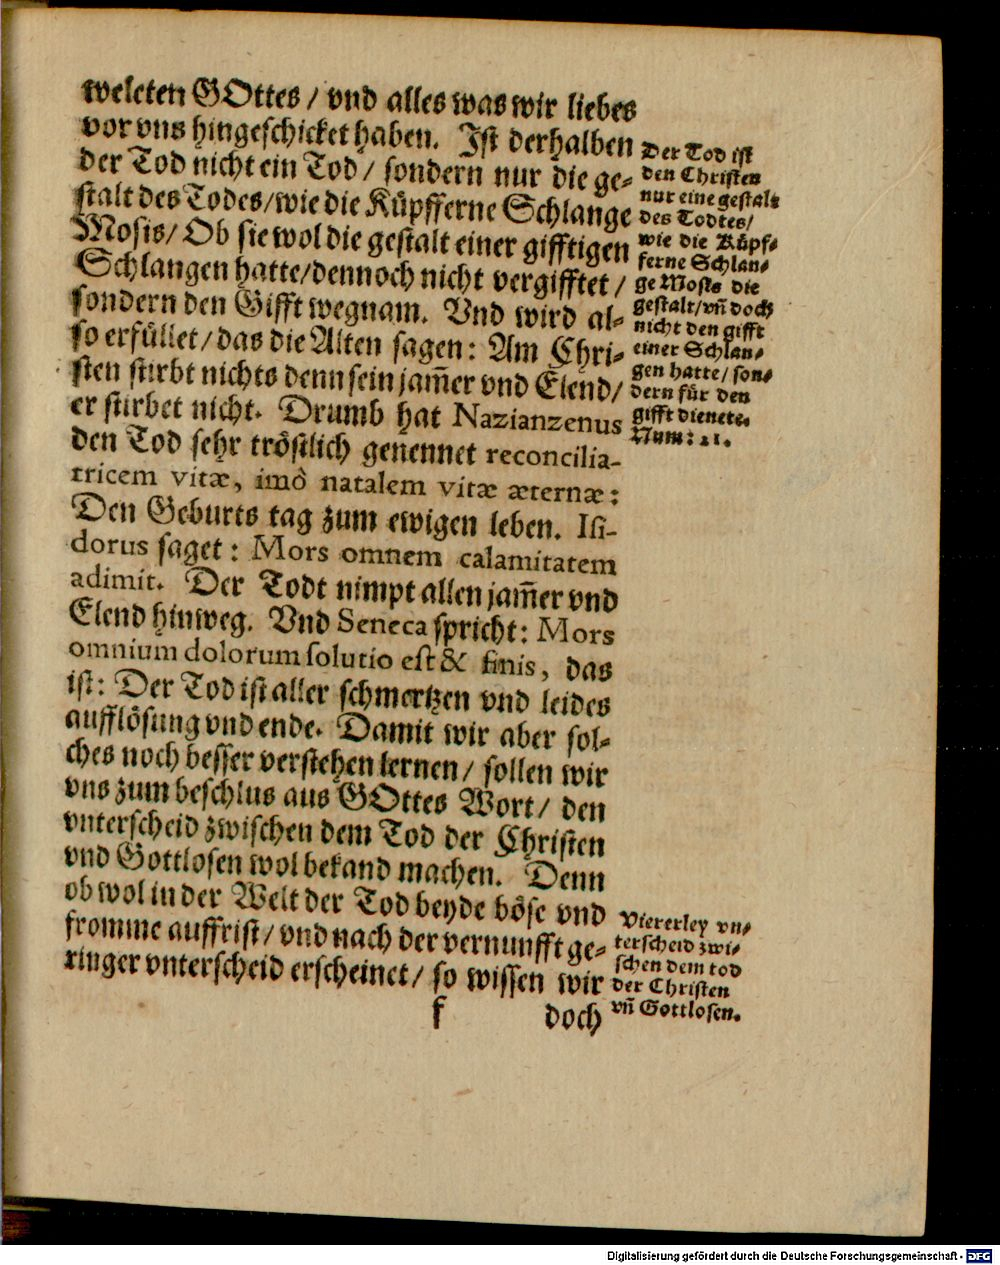 welcten GOttes / vnd alles was wir liebes
vor vns hingeschicket haben. Ist derhalben
der Tod nicht ein Tod / sondern nur die ge-
stalt des Todes/wie die Küpfferne Schlange
Mosis/ Ob sie wol die gestalt einer gifftigen
Schlangen hatte/dennoch nicht vergifftet /
sondern den Gifft wegnam. Vnd wird al-
so erfüllet/das die Alten sagen: Am Chri-
sten stirbt nichts denn sein jam̃er vnd Elend/
er stirbet nicht. Drumb hat Nazianzenus
den Tod sehr tröstlich genennet reconcilia-
tricem vitæ, imò natalem vitæ æternæ:
Den Geburts tag zum ewigen leben. Isi-
dorus saget: Mors omnem calamitatem
adimit. Der Todt nimpt allen jam̃er vnd
Elend hinweg. Vnd Seneca spricht: Mors
omnium dolorum solutio est & finis, das
ist: Der Tod ist aller schmertzen vnd leides
aufflösung vnd ende. Damit wir aber sol-
ches noch besser verstehen lernen/ sollen wir
vns zum beschlus aus GOttes Wort/ den
vnterscheid zwischen dem Tod der Christen
vnd Gottlosen wol bekand machen. Denn
ob wol in der Welt der Tod beyde böse vnd
fromme auffrist/ vnd nach der vernunfft ge-
ringer vnterscheid erscheinet/ so wissen wir
f doch
Der Tod ist
den Christen
nur eine gestalt
des Todtes/
wie die Küpf-
ferne Schlan-
ge Mosis die
gestalt/vñ doch
nicht den gifft
einer Schlan-
gen hatte/ son-
dern für den
gifft dienete.
Num: 21.
Viererley vn-
terscheid zwi-
schen dem tod
der Christen
vñ Gottlosen.
Digitalisierung gefördert durch die Deutsche Forschungsgemeinschaft - DFG